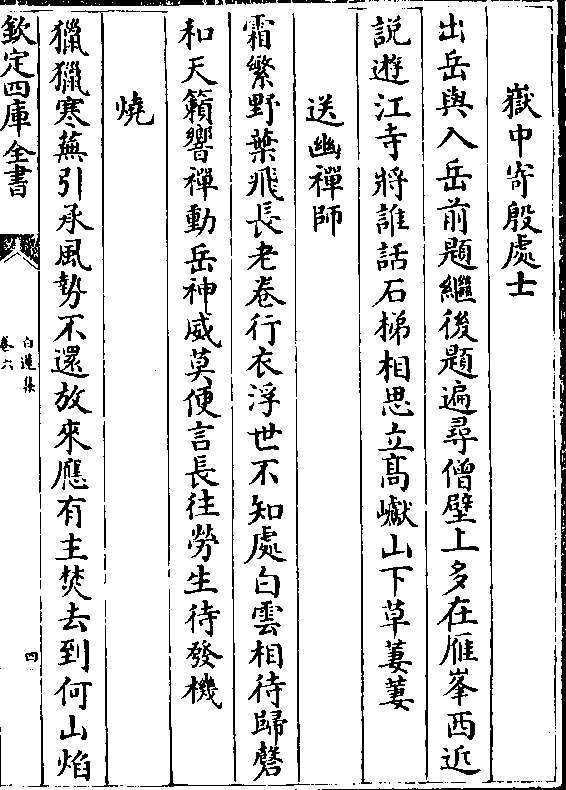 嶽中寄殷處士
出岳與入岳前題繼後題遍尋僧壁上多在雁峯西近
説遊江寺將誰話石梯相思立髙巘山下草萋萋
送幽禪師
霜繁野葉飛長老卷行衣浮世不知處白雲相待歸磬
和天籟響禪動岳神威莫便言長往勞生待發機
燒
獵獵寒蕪引承風勢不還放來應有主焚去到何山焰
欽定四庫全書
白蓮集
卷六
四